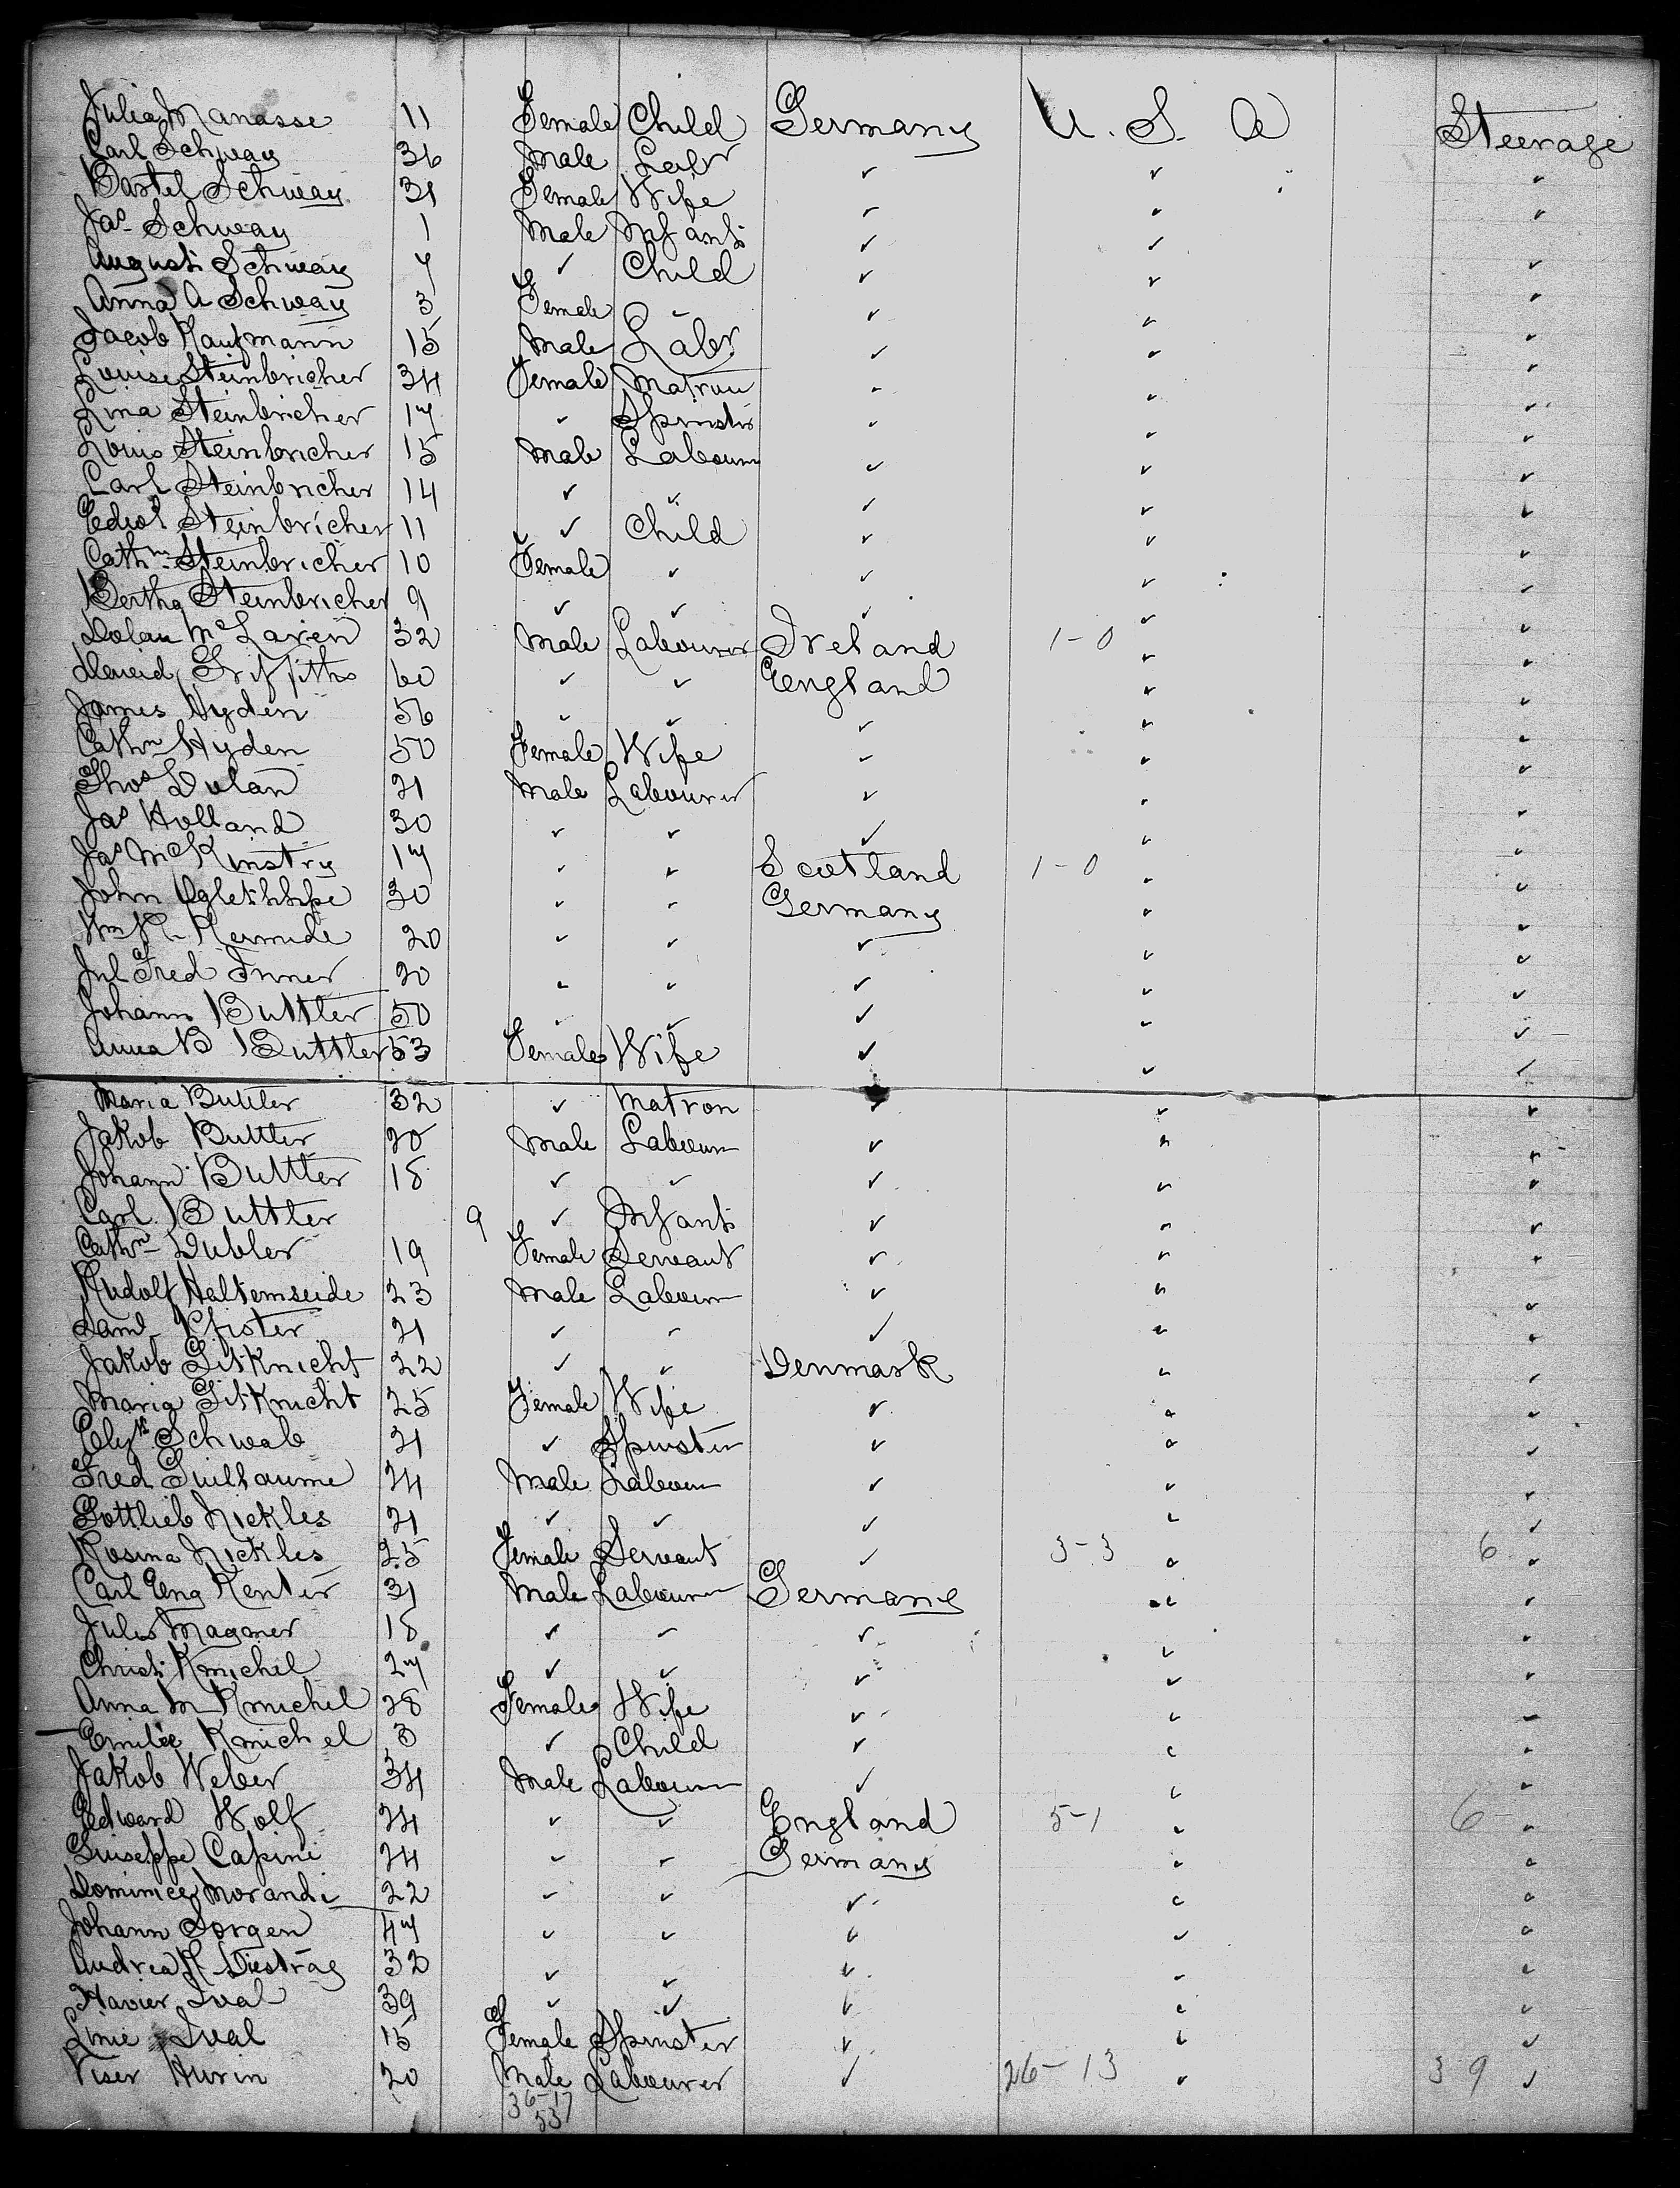 Julia Manasse 11 Female Child Germany U. S. A Steerage
Carl Schway 36 Male Labr ✓ ✓ ✓
Bartel Schway 31 Female Wife ✓ ✓ ✓
Jas Schway 1 Male Infant ✓ ✓ ✓
August Schway 7 ✓ Child ✓ ✓ ✓
Anna A Schway 3 Female ✓ ✓ ✓ ✓
Jacob Kaufmann 15 Male Labr ✓ ✓ ✓
Louise Steinbricher 34 Female Matron ✓ ✓ ✓
Lina Steinbricher 17 ✓ Spinster ✓ ✓ ✓
Louis Steinbricher 15 Male Labourer ✓ ✓ ✓
Carl Steinbricher 14 ✓ ✓ ✓ ✓ ✓
Steinbricher 11 ✓ Child ✓ ✓ ✓
Cathn Steinbricher 10 Female ✓ ✓ ✓ ✓
Bertha Steinbricher 9 ✓ ✓ ✓ ✓ ✓
Dolan McLaren 32 Male Labourer Ireland 1-0 ✓ ✓
David Griffiths 60 ✓ ✓ England ✓ ✓
James Hyden 56 ✓ ✓ ✓ ✓ ✓
Cathn Hyden 50 Female Wife ✓ ✓ ✓
Thos Dolan 21 Male Labourer ✓ ✓ ✓
Jas Holland 30 ✓ ✓ ✓ ✓ ✓
Jas McKinstry 17 ✓ ✓ Scotland 1-0 ✓ ✓
John 30 ✓ ✓ Germany ✓ ✓
Wm 20 ✓ ✓ ✓ ✓ ✓
Jul Fred Inner 20 ✓ ✓ ✓ ✓ ✓
Johann Buttler 50 ✓ ✓ ✓ ✓ ✓
Anna B Buttler 53 Female Wife ✓ ✓ ✓
Maria Buttler 32 ✓ Matron ✓ ✓ ✓
Jakob Buttler 20 Male Labourer ✓ ✓ ✓
Johann Buttler 18 ✓ ✓ ✓ ✓ ✓
Carl Buttler 9 ✓ Infant ✓ ✓ ✓
Cathn Dubler 19 Female Servant ✓ ✓ ✓
Rudolf Haltemseide 23 Male Labourer ✓ ✓ ✓
Saml Pfister 21 ✓ ✓ ✓ ✓ ✓
Jakob Gutknicht 22 ✓ ✓ Denmark ✓ ✓
Maria Gutknicht 25 Female Wife ✓ ✓ ✓
Schwab 21 ✓ Spinster ✓ ✓ ✓
Fred Guillaume 24 Male Labourer ✓ ✓ ✓
Gottlieb Nickles 21 ✓ ✓ ✓ ✓ ✓
Rosina Nickles 25 Female Servant ✓ 3-3 ✓ 6 ✓
Carl Eug Renter 31 Male Labourer Germany ✓ ✓
Jules Magner 18 ✓ ✓ ✓ ✓ ✓
Christ Kmichel 27 ✓ ✓ ✓ ✓ ✓
Anna M Kmichel 28 Female Wife ✓ ✓ ✓
Emilie Kmichel 3 ✓ Child ✓ ✓ ✓
Jakob Weber 34 Male Labourer ✓ ✓ ✓
Edward Wolf 24 ✓ ✓ England 5-1 ✓ 6 ✓
Guiseppe Capini 24 ✓ ✓ Germany ✓ ✓
Dominico Morandi 22 ✓ ✓ ✓ ✓ ✓
Johann Sorgen 47 ✓ ✓ ✓ ✓ ✓
Andrea 32 ✓ ✓ ✓ ✓ ✓
Havier Ival 39 ✓ ✓ ✓ ✓ ✓
Line Ival 15 Female Spinster ✓ ✓ ✓
Viser Hurin 20 Male Labourer ✓ 26-13 ✓ 39 ✓
36-17
53